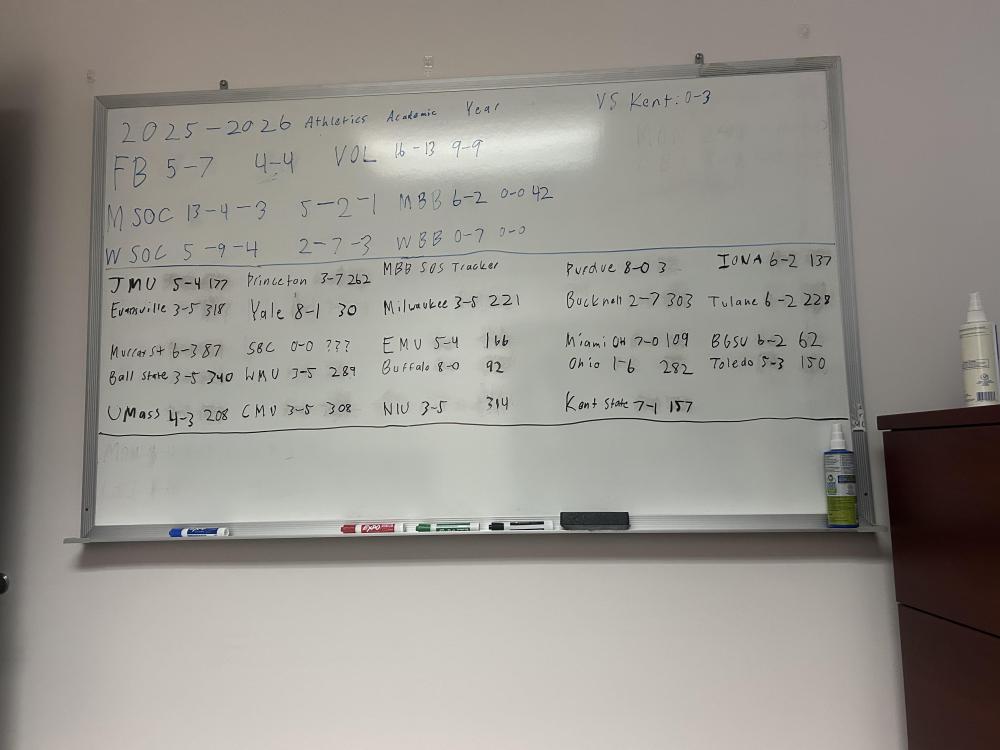 2025-2026 Athletics Academic Year VS Kent: 0-3
FB 5-7 4-4 VOL 16-13 9-9
M SOC 13-4-3 5-2-1 MBB 6-2 0-0 42
W SOC 5-9-4 2-7-3 WBB 0-7 0-0
MBB SOS Tracker
JMU 5-4 177 Princeton 3-7 262 Purdue 8-0 3 IONA 6-2 137
Evansville 3-5 318 Yale 8-1 30 Milwaukee 3-5 221 Bucknell 2-7 303 Tulane 6-2 228
Murray St 6-3 87 SBC 0-0 ??? EMU 5-4 166 Miami OH 7-0 109 BGSU 6-2 62
Ball State 3-5 340 WMU 3-5 289 Buffalo 8-0 92 Ohio 1-6 282 Toledo 5-3 150
UMass 4-3 208 CMU 3-5 308 NIU 3-5 314 Kent State 7-1 157
EXPO